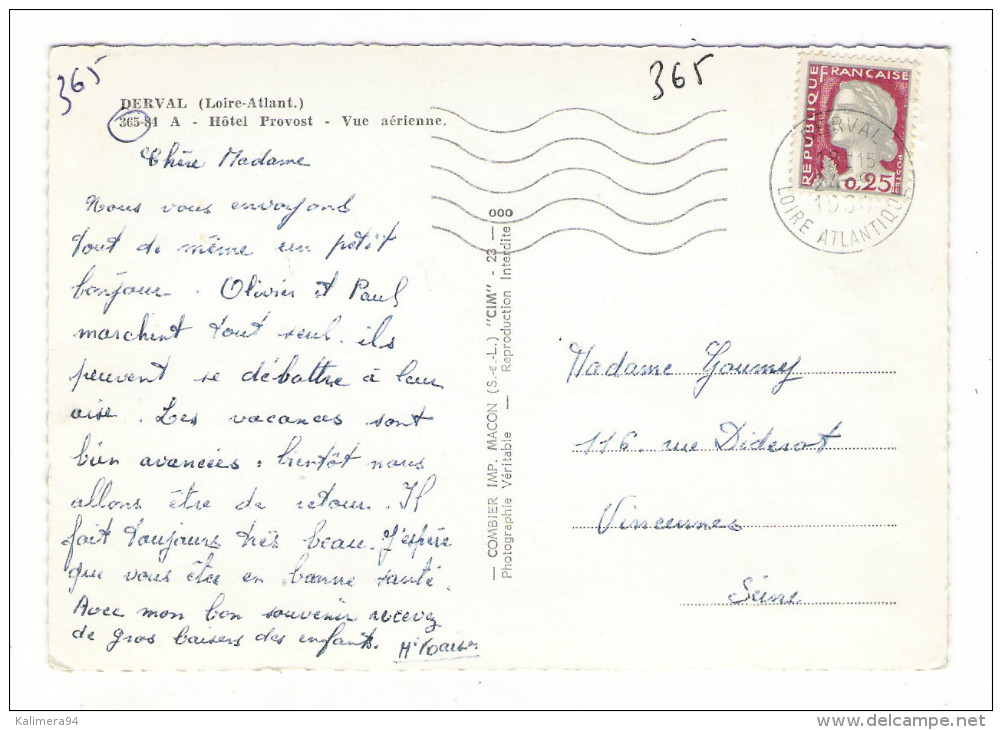 365
365
DERVAL (Loire-Atlant.)
365-84 A - Hôtel Provost - Vue aérienne.
Chère Madame
Nous vous envoyons
tout de même un petit
bonjour. Olivier et Paul
marchent tout seul. ils
peuvent se débattre à leur
aise. Les vacances sont
bien avancées : bientôt nous
allons être de retour. Il
fait toujours très beau. J'espère
que vous êtes en bonne santé.
Avec mon bon souvenir recevez
de gros baisers des enfants.
— COMBIER IMP. MACON (S.-e.-L.) "CIM" - 23 — ooo
Photographie Véritable — Reproduction Interdite
REPUBLIQUE FRANCAISE
POSTES
0,25
DERVAL
LOIRE ATLANTIQUE
Madame Goumy
116. rue Diderot
Vincennes
Seine
Kalimera94
www.delcampe.net